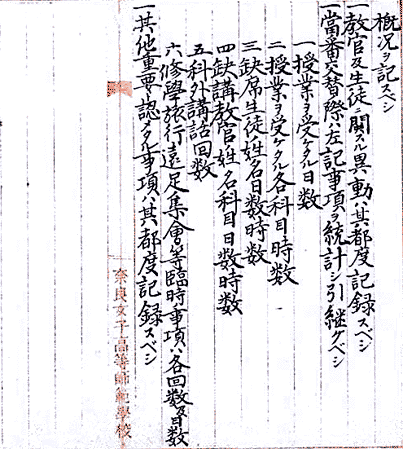 概況ヲ記スベシ
一教官及生徒ニ関スル異動ハ其都度記録スベシ
一當番交替ノ際ハ左記事項ヲ統計シ引継グベシ
一授業ヲ受ケタル日数
二授業ヲ受ケタル各科目時数
三缺席生徒姓名日数時数
四缺講教官姓名科目日数時数
五科外講話回数
六修學旅行遠足集會等臨時事項ハ各回数及日数
一其他重要ト認メタル事項ハ其都度記録スベシ
奈良女子高等師範學校